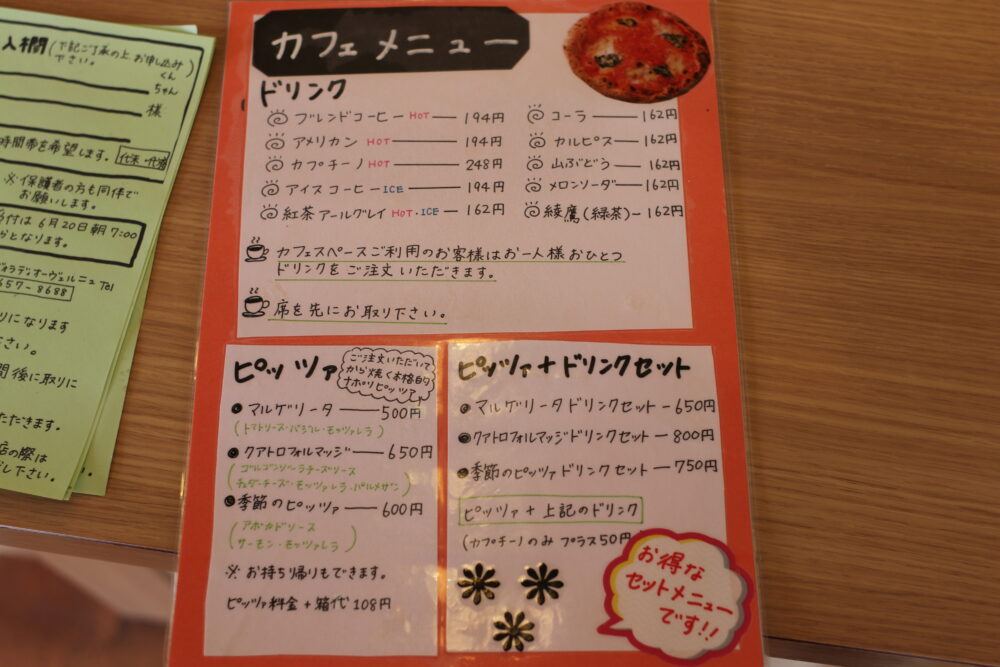 人欄（下記ご了承の上、お申し込み下さい。）
くん
ちゃん
様
時間帯を希望します。
※保護者の方も同伴で
お願いします。
付は6月20日朝7:00
となります。
ヴォラディオーヴェルニュ Tel
657-8688
りになります
さい。
間後に取りに
ただきます。
店の際は
し下さい。
カフェメニュー
ドリンク
ブレンドコーヒー HOT 194円
アメリカン HOT 194円
カプチーノ HOT 248円
アイスコーヒー ICE 194円
紅茶 アールグレイ HOT・ICE 162円
コーラ 162円
カルピス 162円
山ぶどう 162円
メロンソーダ 162円
綾鷹(緑茶) 162円
カフェスペースご利用のお客様はお一人様おひとつ
ドリンクをご注文いただきます。
席を先にお取り下さい。
ピッツァ
ご注文いただいて
から焼く本格的
ナポリピッツァ
マルゲリータ 500円
(トマトソース・バジル・モッツァレラ)
クアトロフォルマッジ 650円
(ゴルゴンゾーラチーズソース
チェダーチーズ・モッツァレラ・パルメザン)
季節のピッツァ 600円
(アボカドソース
サーモン・モッツァレラ)
※ お持ち帰りもできます。
ピッツァ料金+箱代108円
ピッツァ+ドリンクセット
マルゲリータドリンクセット 650円
クアトロフォルマッジドリンクセット 800円
季節のピッツァドリンクセット 750円
ピッツァ + 上記のドリンク
(カプチーノのみ プラス50円
お得な
セットメニュー
です!!